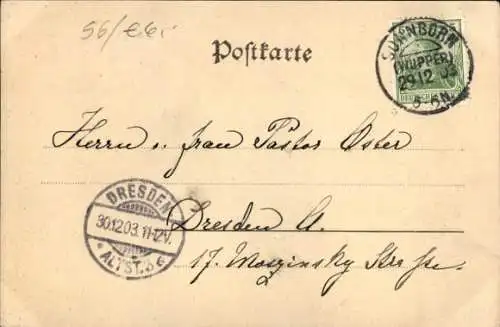 56/
Postkarte
SONNBORN
(WUPPER)
29 12 03
5-6N.
DEUTSCHES
Herrn u. Frau Pastor Oster
DRESDEN
30.12.03.11-12V.
* ALTST. 3 c
Dresden A.
17. Moszinsky Strasse.